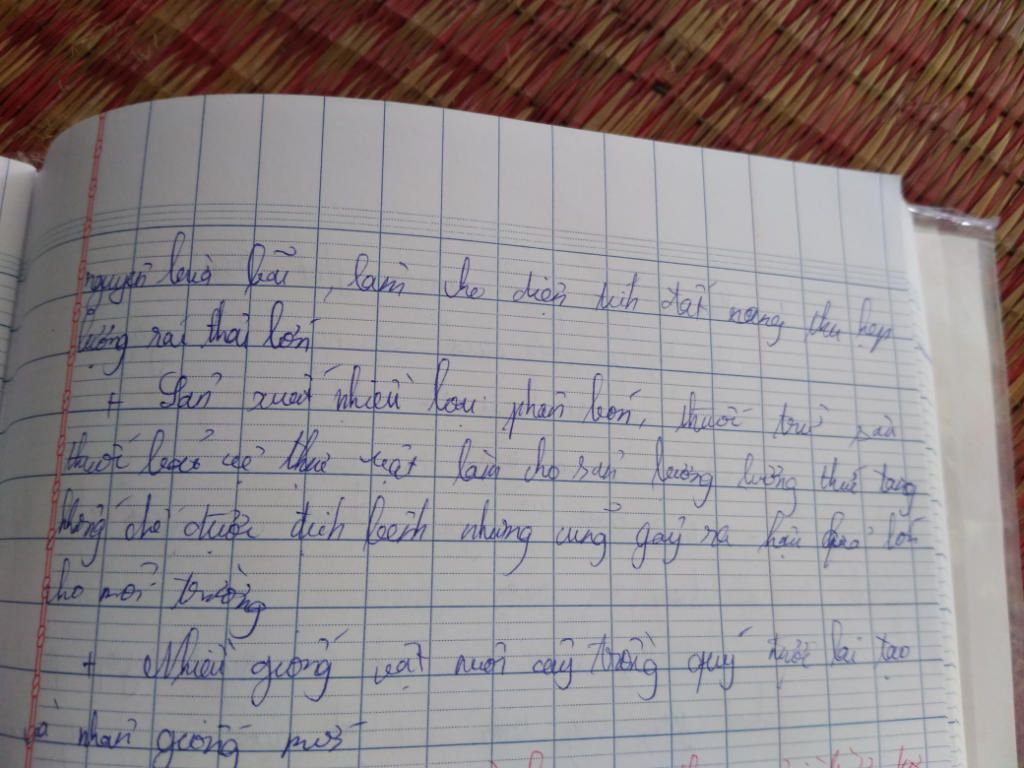 nguyên bừa bãi, làm cho diện tích đất nang thu hẹp
lượng rác thải lớn
+ Sản xuất nhiều loại phân bón, thuốc trừ sâu
thuốc bảo vệ thực vật làm cho sản lượng lương thực tang
khống chế được dịch bệnh nhưng cung gây ra hậu quả lớn
cho môi trường
+ Nhiều giống vật nuôi cây trồng quý được lai tạo
và nhân giống mới